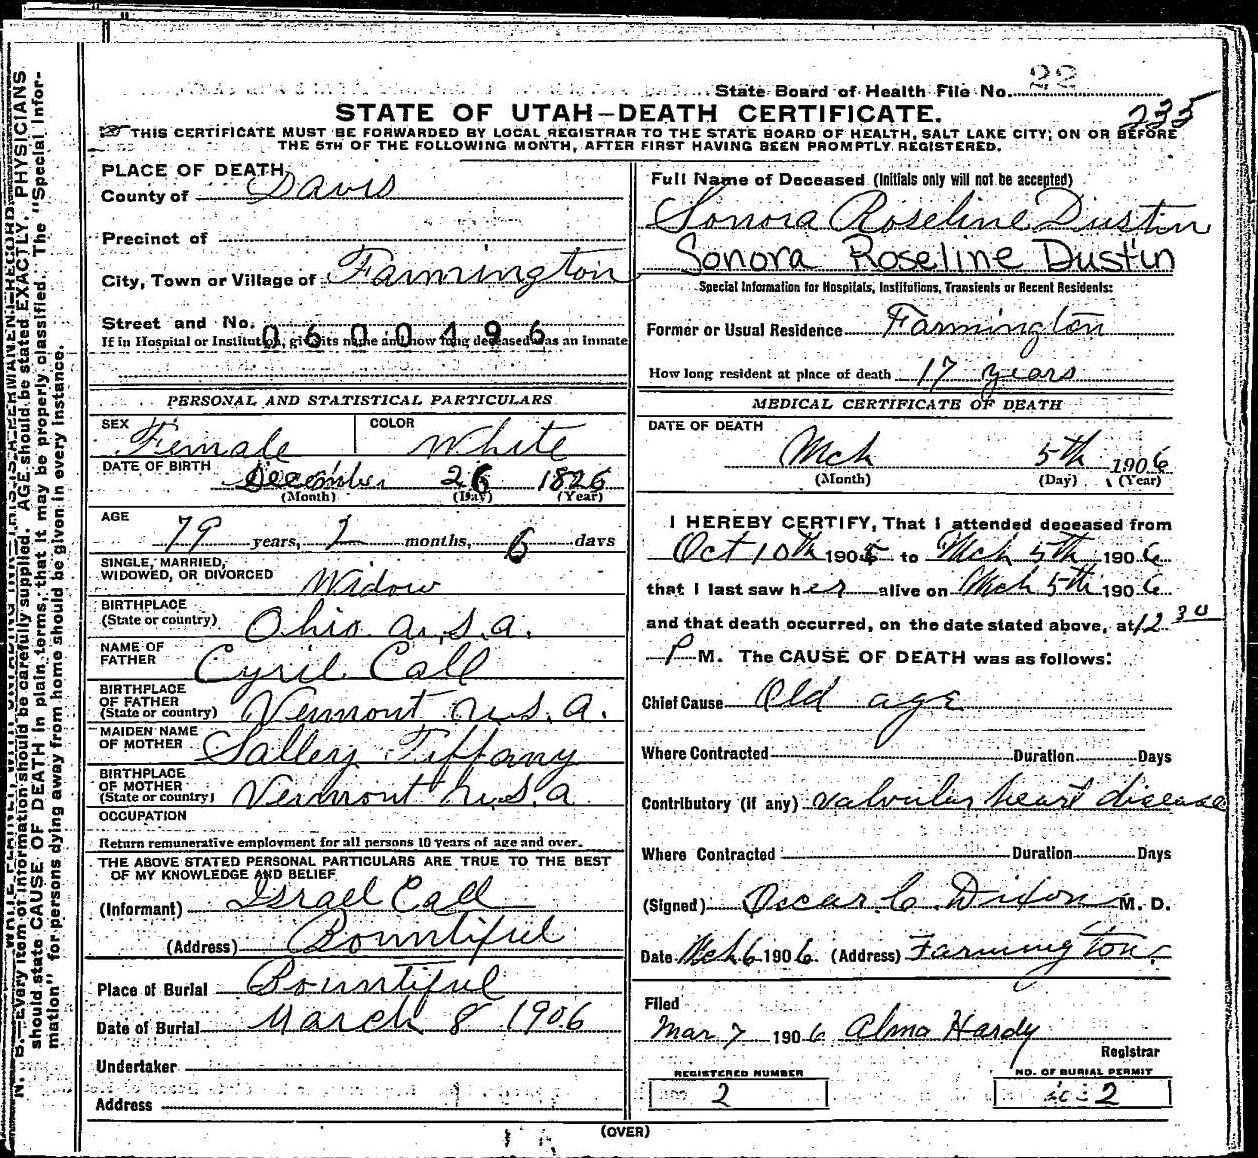 State Board of Health File No. 22
STATE OF UTAH—DEATH CERTIFICATE.
235
THIS CERTIFICATE MUST BE FORWARDED BY LOCAL REGISTRAR TO THE STATE BOARD OF HEALTH, SALT LAKE CITY, ON OR BEFORE
THE 5TH OF THE FOLLOWING MONTH, AFTER FIRST HAVING BEEN PROMPTLY REGISTERED.
PLACE OF DEATH
County of Davis
Precinct of
City, Town or Village of Farmington
Street and No.
0600496
If in Hospital or Institution, give its name and how long deceased was an inmate
PERSONAL AND STATISTICAL PARTICULARS
SEX Female COLOR White
DATE OF BIRTH December 26 1826
(Month) (Day) (Year)
AGE 79 years, 2 months, 6 days
SINGLE, MARRIED,
WIDOWED, OR DIVORCED Widow
BIRTHPLACE
(State or country) Ohio U.S.A.
NAME OF
FATHER Cyril Call
BIRTHPLACE
OF FATHER
(State or country) Vermont U.S.A.
MAIDEN NAME
OF MOTHER Salley Tiffany
BIRTHPLACE
OF MOTHER
(State or country) Vermont U.S.A
OCCUPATION
Return remunerative employment for all persons 10 years of age and over.
THE ABOVE STATED PERSONAL PARTICULARS ARE TRUE TO THE BEST
OF MY KNOWLEDGE AND BELIEF
(Informant) Israel Call
(Address) Bountiful
Place of Burial Bountiful
Date of Burial March 8 1906
Undertaker
Address
Full Name of Deceased (Initials only will not be accepted)
Sonora Roseline Dustin
Sonora Roseline Dustin
Special Information for Hospitals, Institutions, Transients or Recent Residents:
Former or Usual Residence Farmington
How long resident at place of death 17 years
MEDICAL CERTIFICATE OF DEATH
DATE OF DEATH
Mch 5th 1906
(Month) (Day) (Year)
I HEREBY CERTIFY, That I attended deceased from
Oct 10th 1905 to Mch 5th 1906
that I last saw her alive on Mch 5th 1906
and that death occurred, on the date stated above, at 12 30
P M. The CAUSE OF DEATH was as follows:
Chief Cause Old age
Where Contracted Duration Days
Contributory (if any) valvular heart disease
Where Contracted Duration Days
(Signed) Oscar C. Dixon M. D.
Date Mch 6 1906 (Address) Farmington.
Filed
Mar 7 1906 Alma Hardy
Registrar
REGISTERED NUMBER
2
NO. OF BURIAL PERMIT
2
(OVER)
N. B. Every item of information should be carefully supplied. AGE should be stated EXACTLY. PHYSICIANS
should state CAUSE OF DEATH in plain terms, that it may be properly classified. The "Special Infor-
mation" for persons dying away from home should be given in every instance.